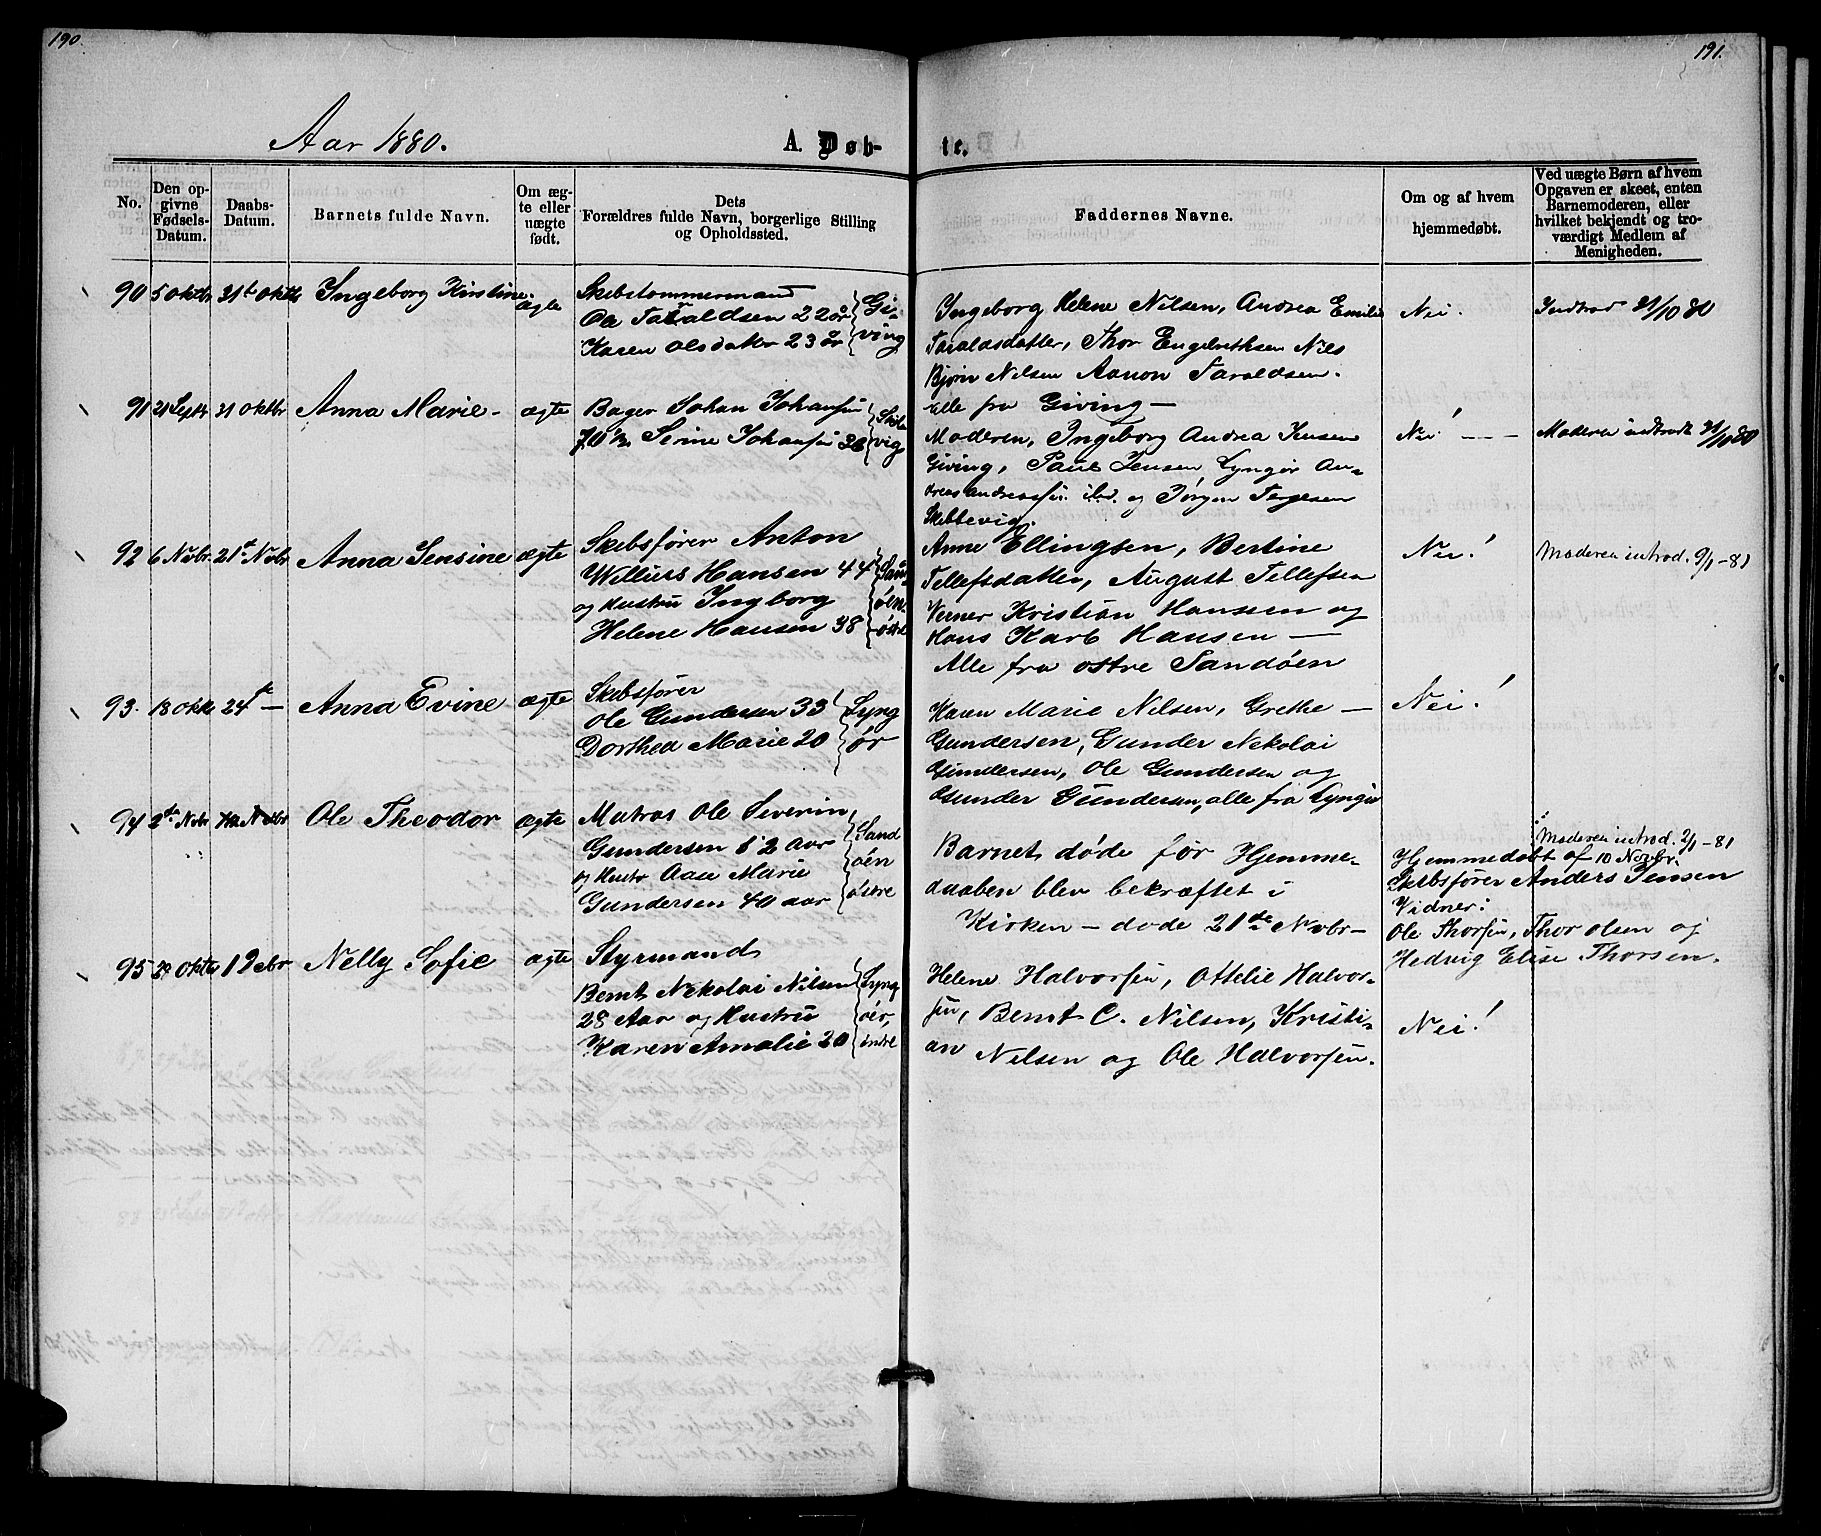 190.
191.
Aar 1880.
A. Døb-
te.
No.
Den op-
givne
Fødsels-
Datum.
Daabs-
Datum.
Barnets fulde Navn.
Om æg-
te eller
uægte
født.
Dets
Forældres fulde Navn, borgerlige Stilling
og Opholdssted.
Faddernes Navne.
Om og af hvem
hjemmedøbt.
Ved uægte Børn af hvem
Opgaven er skeet, enten
Barnemoderen, eller
hvilket bekjendt og tro-
værdigt Medlem af
Menigheden.
90 5 oktbr 31te oktb Ingeborg Kirstine. ægte
Skibstømmermand
Ole Taraldsen 22 år
Karen Olsdatter 23 år
Gi-
ving
Ingeborg Helene Nilsen, Andrea Emilie
Taraldsdatter, Thor Engebrethsen Nils
Bjørn Nilsen Aanon Taraldsen.
alle fra Giving —
Nei.
Indtrad 31/10 80
91 21 Septr 31 oktbr Anna Marie - ægte
Bager Johan Johansen
og Serine Johansen 32
vig
Moderen, Ingeborg Andrea Jensen
Giving, Paul Jensen Lyngör An-
dreas Andreassen ibd. og Jörgen Terjesen
Skibbevig.
Nei! — —
Moderen indtrad 31/10 80
92 6 Nvbr. 21te Nvbr Anna Jensine ægte
Skibsfører Anton
Willius Hansen 44
og Hustru Ingborg
Helene Hansen 38
Sand-
öen
östre
Anne Ellingsen, Bertine
Tellefsdatter, August Tellefsen
Verner Kristian Hanssen og
Hans Karl Hansen —
Alle fra östre Sandöen
Nei!
Moderen introd. 9/1-81
93. 18 okt 24de — Anna Evine ægte
Skibsfører
Ole Gundersen 33
Dorthea Marie 20
Lyng
ör
Karen Marie Nilsen, Grethe —
Gundersen, Gunder Nikolai
Gundersen, Ole Gundersen og
Gunder Gundersen, alle fra Lyngör
Nei!
94 2den Nvbr 10 Novbr Ole Theodor ægte
Matros Ole Severin
Gundersen 52 Aar
og Hustr Aase Marie
Gundersen 40 aar
Sand
öen
östre
Barnet døde før Hjemme-
daaben blev bekræftet i
Kirken — døde 21de Novbr —
Moderen introd. 2/1-81
Hjemmedøbt af 10 Novbr.
Skibsfører Anders Jensen
Vidner:
Ole Thorsen, Thor Olsen og
Hedvig Elise Thorsen.
95 29 oktbr 19 Nbr Nelly Sofie ægte
Styrmand
Bernt Nikolai Nilsen
28 Aar og Hustru
Karen Amalie 20
Lyng
öer,
indre
Helene Halvorsen, Ottilie Halvor-
sen, Bernt C. Nilsen, Kristi-
an Nilsen og Ole Halvorsen.
Nei!